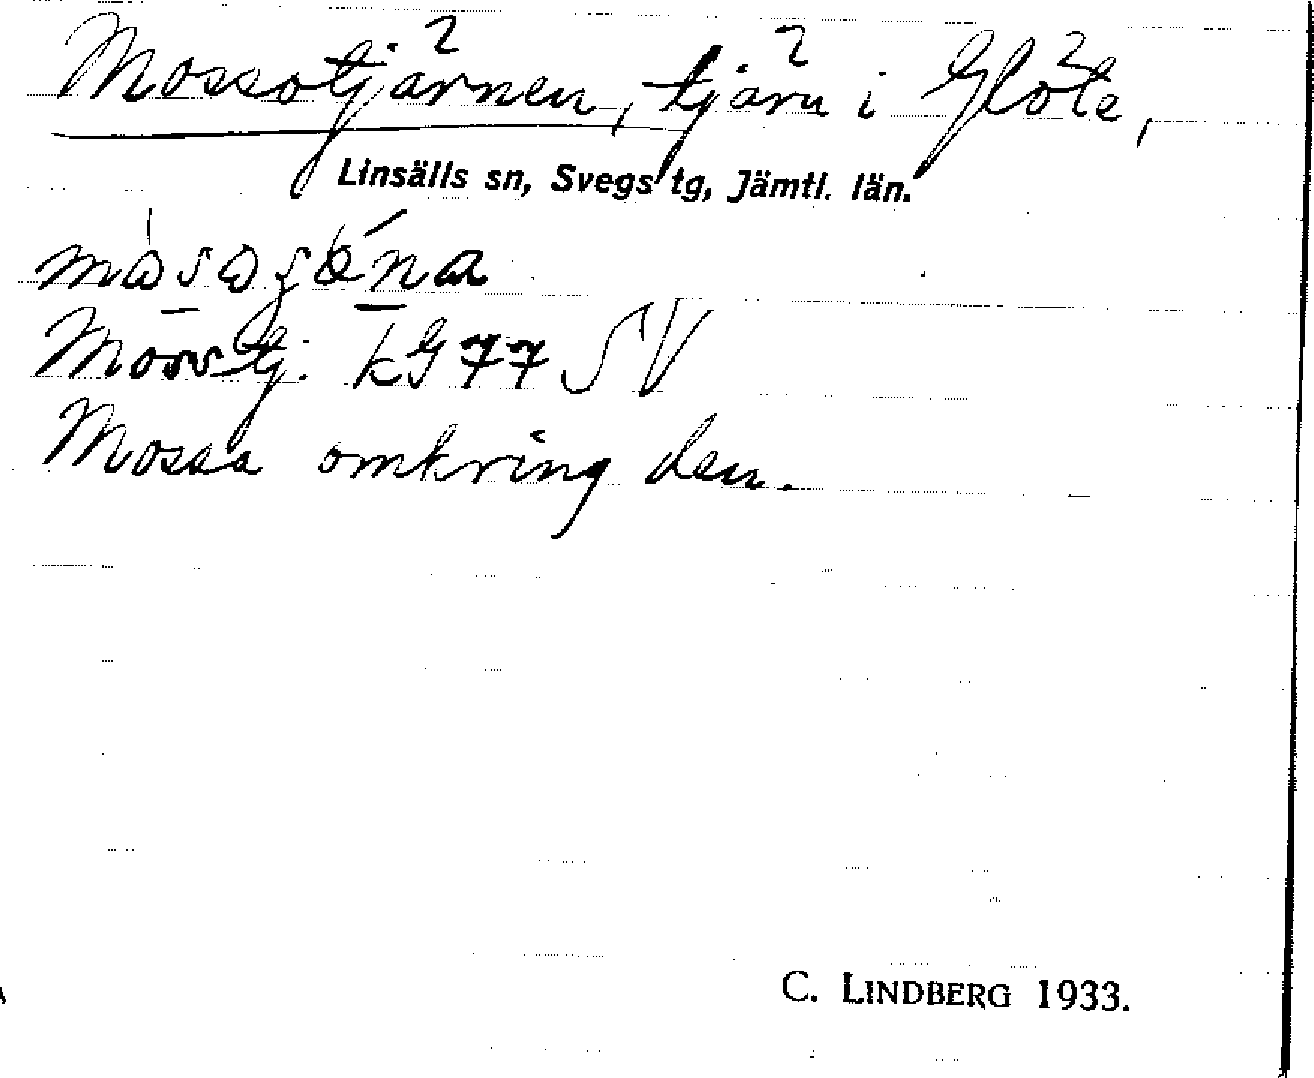 Mossotjärnen, tjärn i Glöte,
Linsälls sn, Svegs tg, Jämtl. län.
Mosstj. kG 77 SV
Mossa omkring den.
C. LINDBERG 1933.